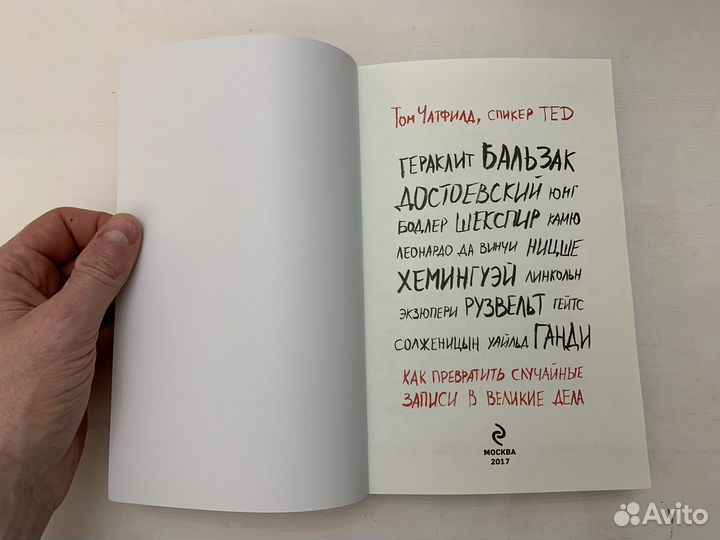 Том Чатфилд, спикер TED
ГЕРАКЛИТ БАЛЬЗАК
ДОСТОЕВСКИЙ ЮНГ
БОДЛЕР ШЕКСПИР КАМЮ
ЛЕОНАРДО ДА ВИНЧИ НИЦШЕ
ХЕМИНГУЭЙ ЛИНКОЛЬН
ЭКЗЮПЕРИ РУЗВЕЛЬТ ГЕЙТС
СОЛЖЕНИЦЫН УАЙЛЬД ГАНДИ
КАК ПРЕВРАТИТЬ СЛУЧАЙНЫЕ
ЗАПИСИ В ВЕЛИКИЕ ДЕЛА
МОСКВА
2017
Avito